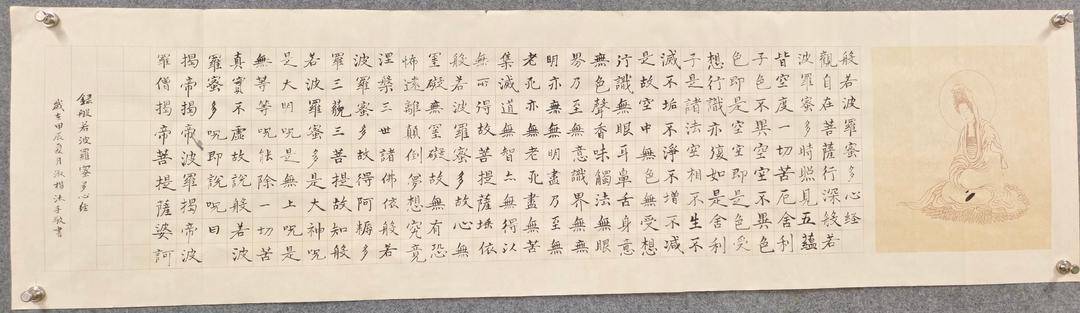 般若波羅蜜多心経
觀自在菩薩行深般若
波羅蜜多時照見五蘊
皆空度一切苦厄舍利
子色不異空空不異色
色即是空空即是色受
想行識亦復如是舍利
子是諸法空相不生不
滅不垢不淨不增不減
是故空中無色無受想
行識無眼耳鼻舌身意
無色聲香味觸法無眼
界乃至無意識界無無
明亦無無明盡乃至無
老死亦無老死盡無苦
集滅道無智亦無得以
無所得故菩提薩埵依
般若波羅蜜多故心無
罣礙無罣礙故無有恐
怖遠離顛倒夢想究竟
涅槃三世諸佛依般若
波羅蜜多故得阿耨多
羅三藐三菩提故知般
若波羅蜜多是大神呪
是大明呪是無上呪是
無等等呪能除一切苦
真實不虛故說般若波
羅蜜多呪即說呪曰
揭帝揭帝波羅揭帝波
羅僧揭帝菩提薩婆訶
錄般若波羅蜜多心経
歲在甲辰夏月淑楷沐手敬書